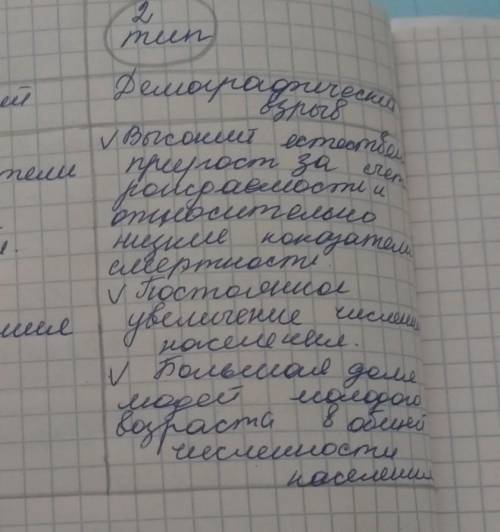 2
тип
Демографический
взрыв
ей
✓ Высокий естествен
тели
прирост за счет
рождаемости и
относительно
й.
низкие показатели
смертности.
✓ Постоянное
ния
увеличение числен
населения.
✓ Большая доля
людей молодого
возраста в общей
численности
населения